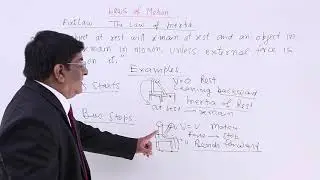 Laws of Motion
First Law The Law of Inertia
object at rest will remain at rest and an object in
remain in motion unless external force is
on it."
Examples
Bus Starts
V=0 Rest
Leaning backward
at rest
Inertia of Rest
remain
Bus Stops
V=V Motion
force → Stop
" Bends forward